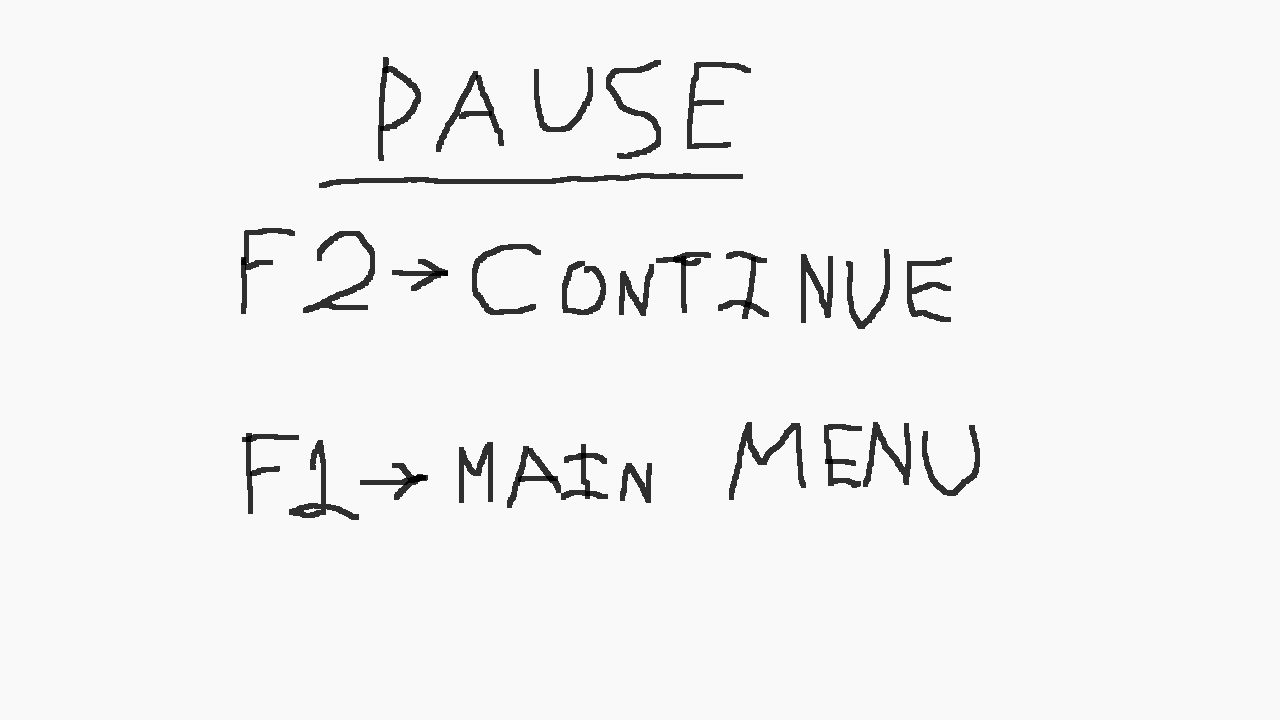 PAUSE
F2 → CONTINUE
F1 → MAIN MENU